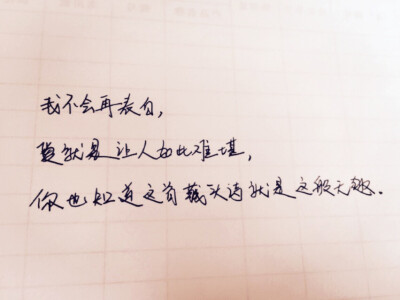 我不会再表白,
爱就是让人如此难堪,
你也知道这首藏头诗就是这般无趣.